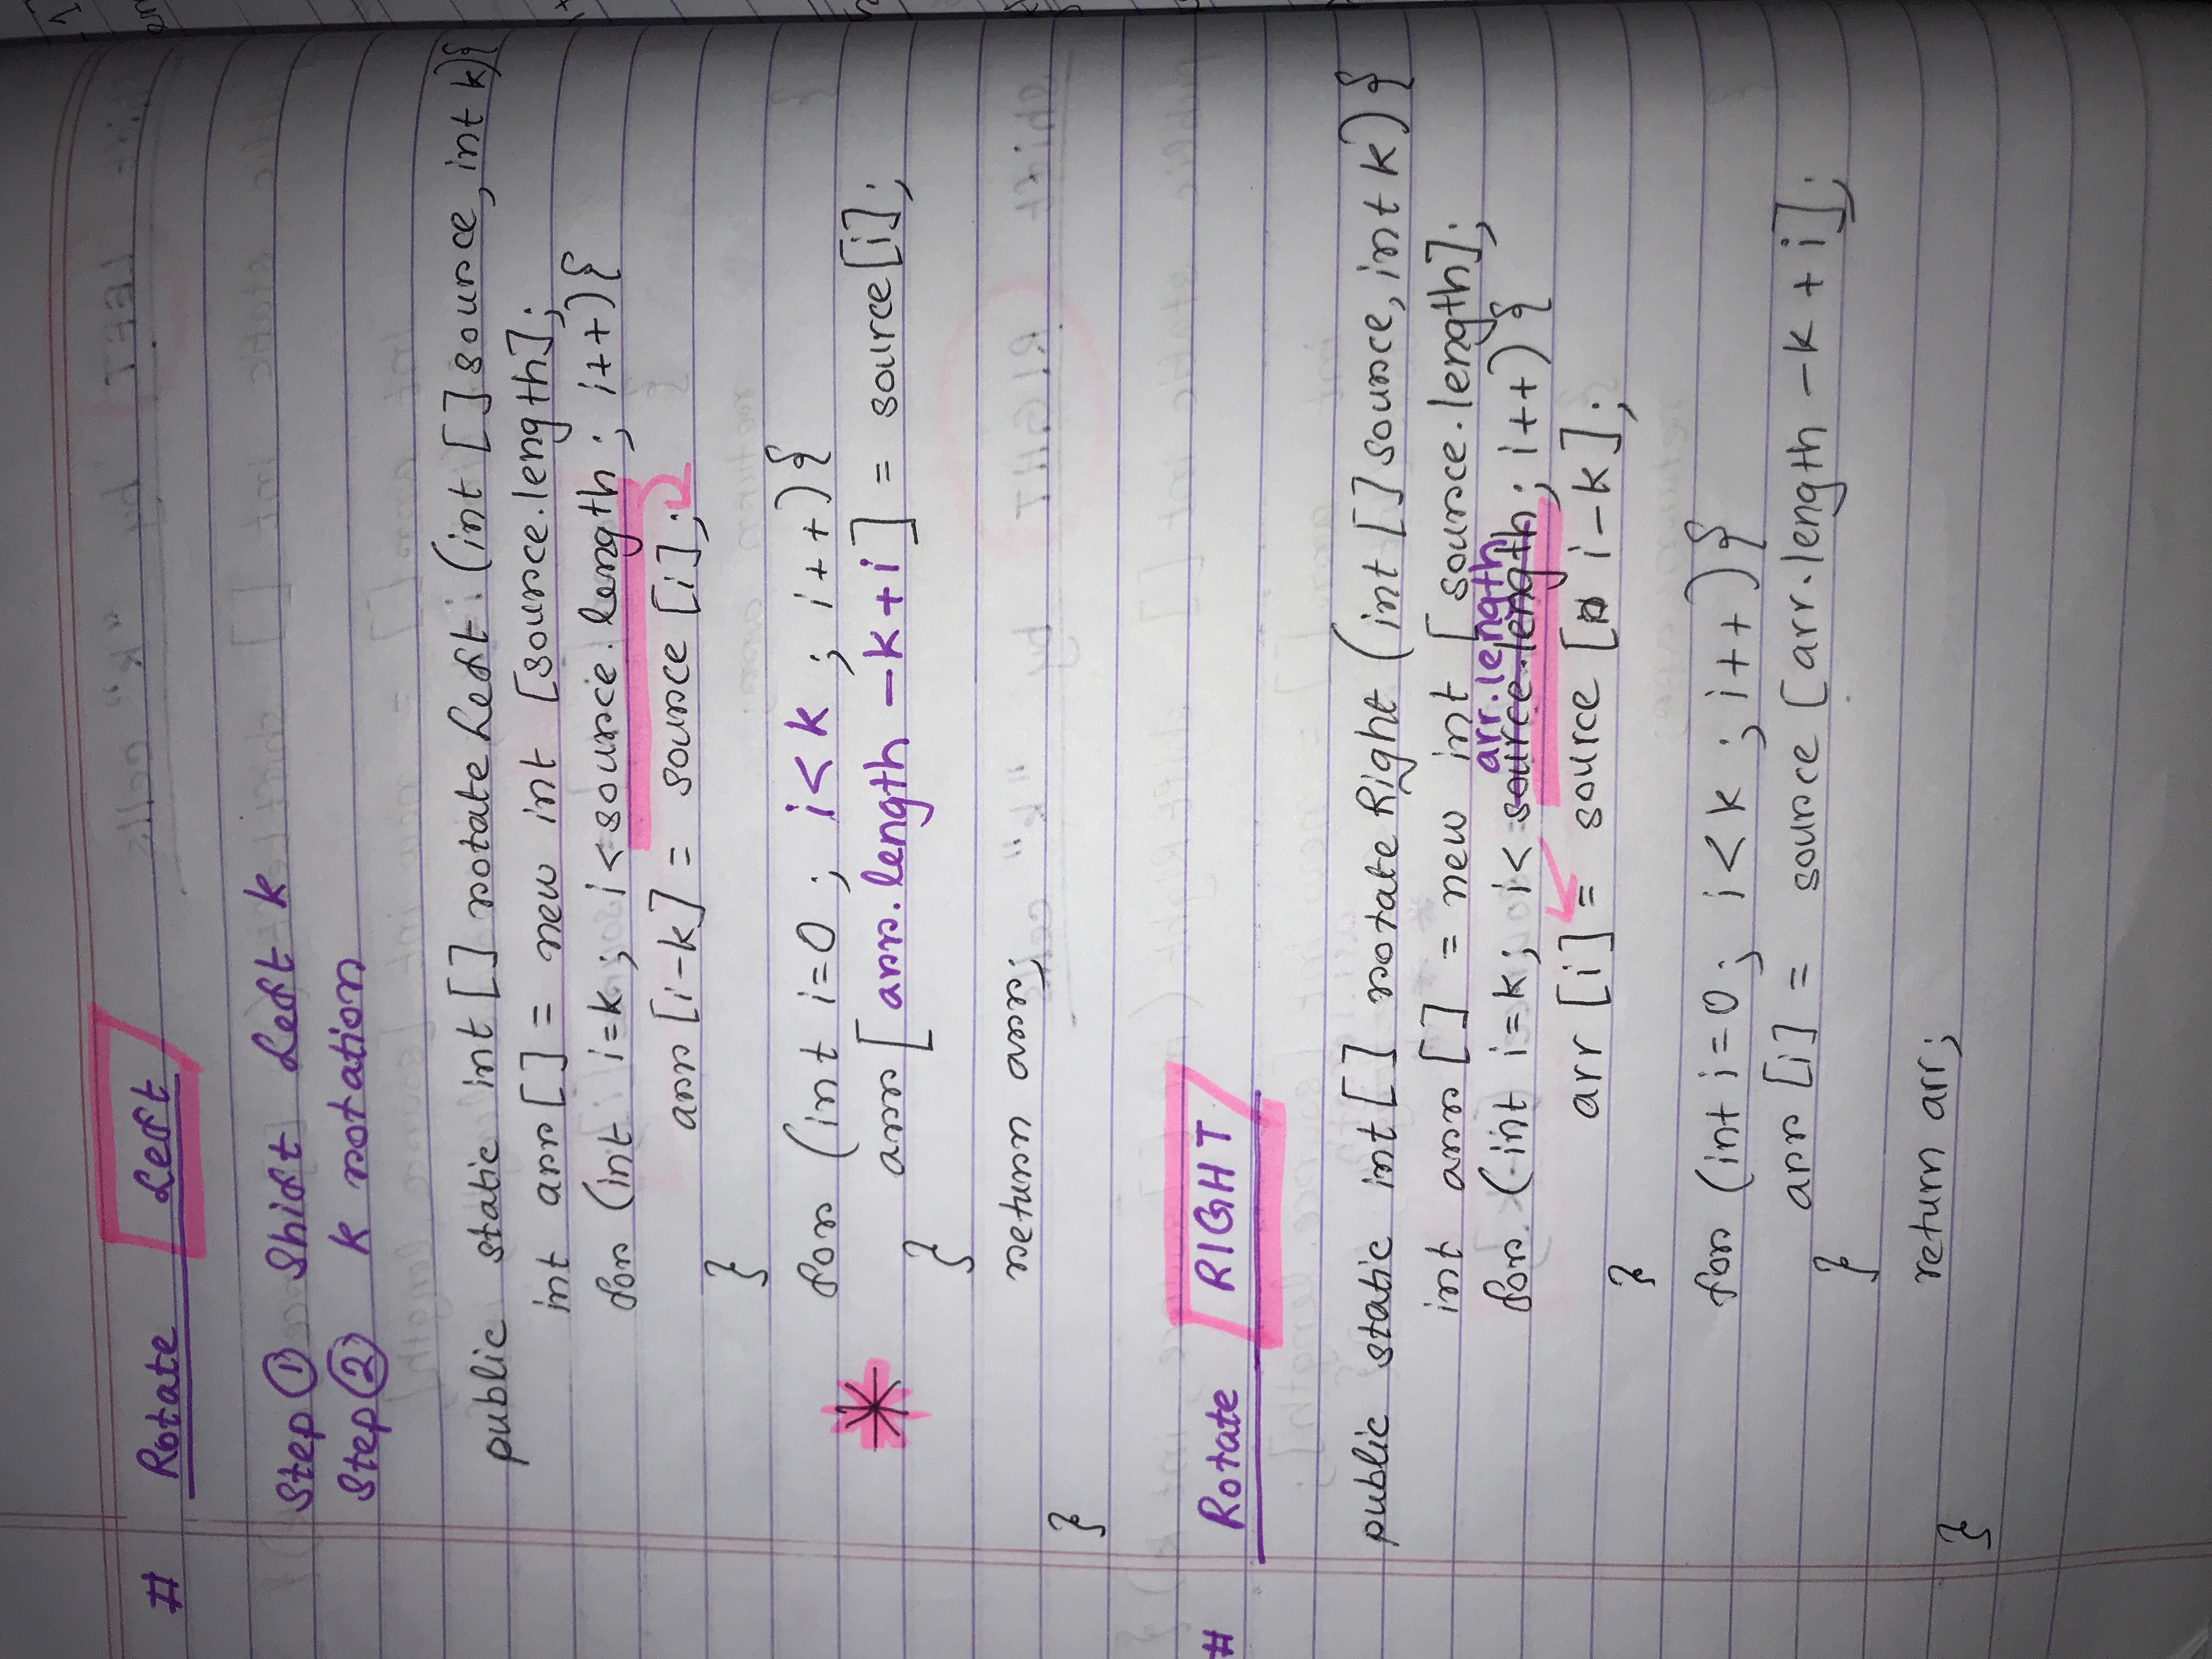 # Rotate Left
Step ① Shift Left k
Step ② k rotation
public static int [] rotateLeft. (int [] source, int k){
int arr [] = new int [source.length];
for (int i=k ; i < source.length ; i++){
arr [i-k] = source [i];
}
for (int i=0 ; i < k ; i++){
* arr [arr.length -k+i] = source[i];
}
return arr;
}
# Rotate RIGHT
public static int [] rotate Right (int [] source, int k) {
int arr [] = new int [source.length];
arr.length
for (int i=k; i < source.length; i++) {
arr [i] = source [ i-k];
}
for (int i=0; i<k ; i++){
arr [i] = source [arr.length -k + i];
}
return arr;
}